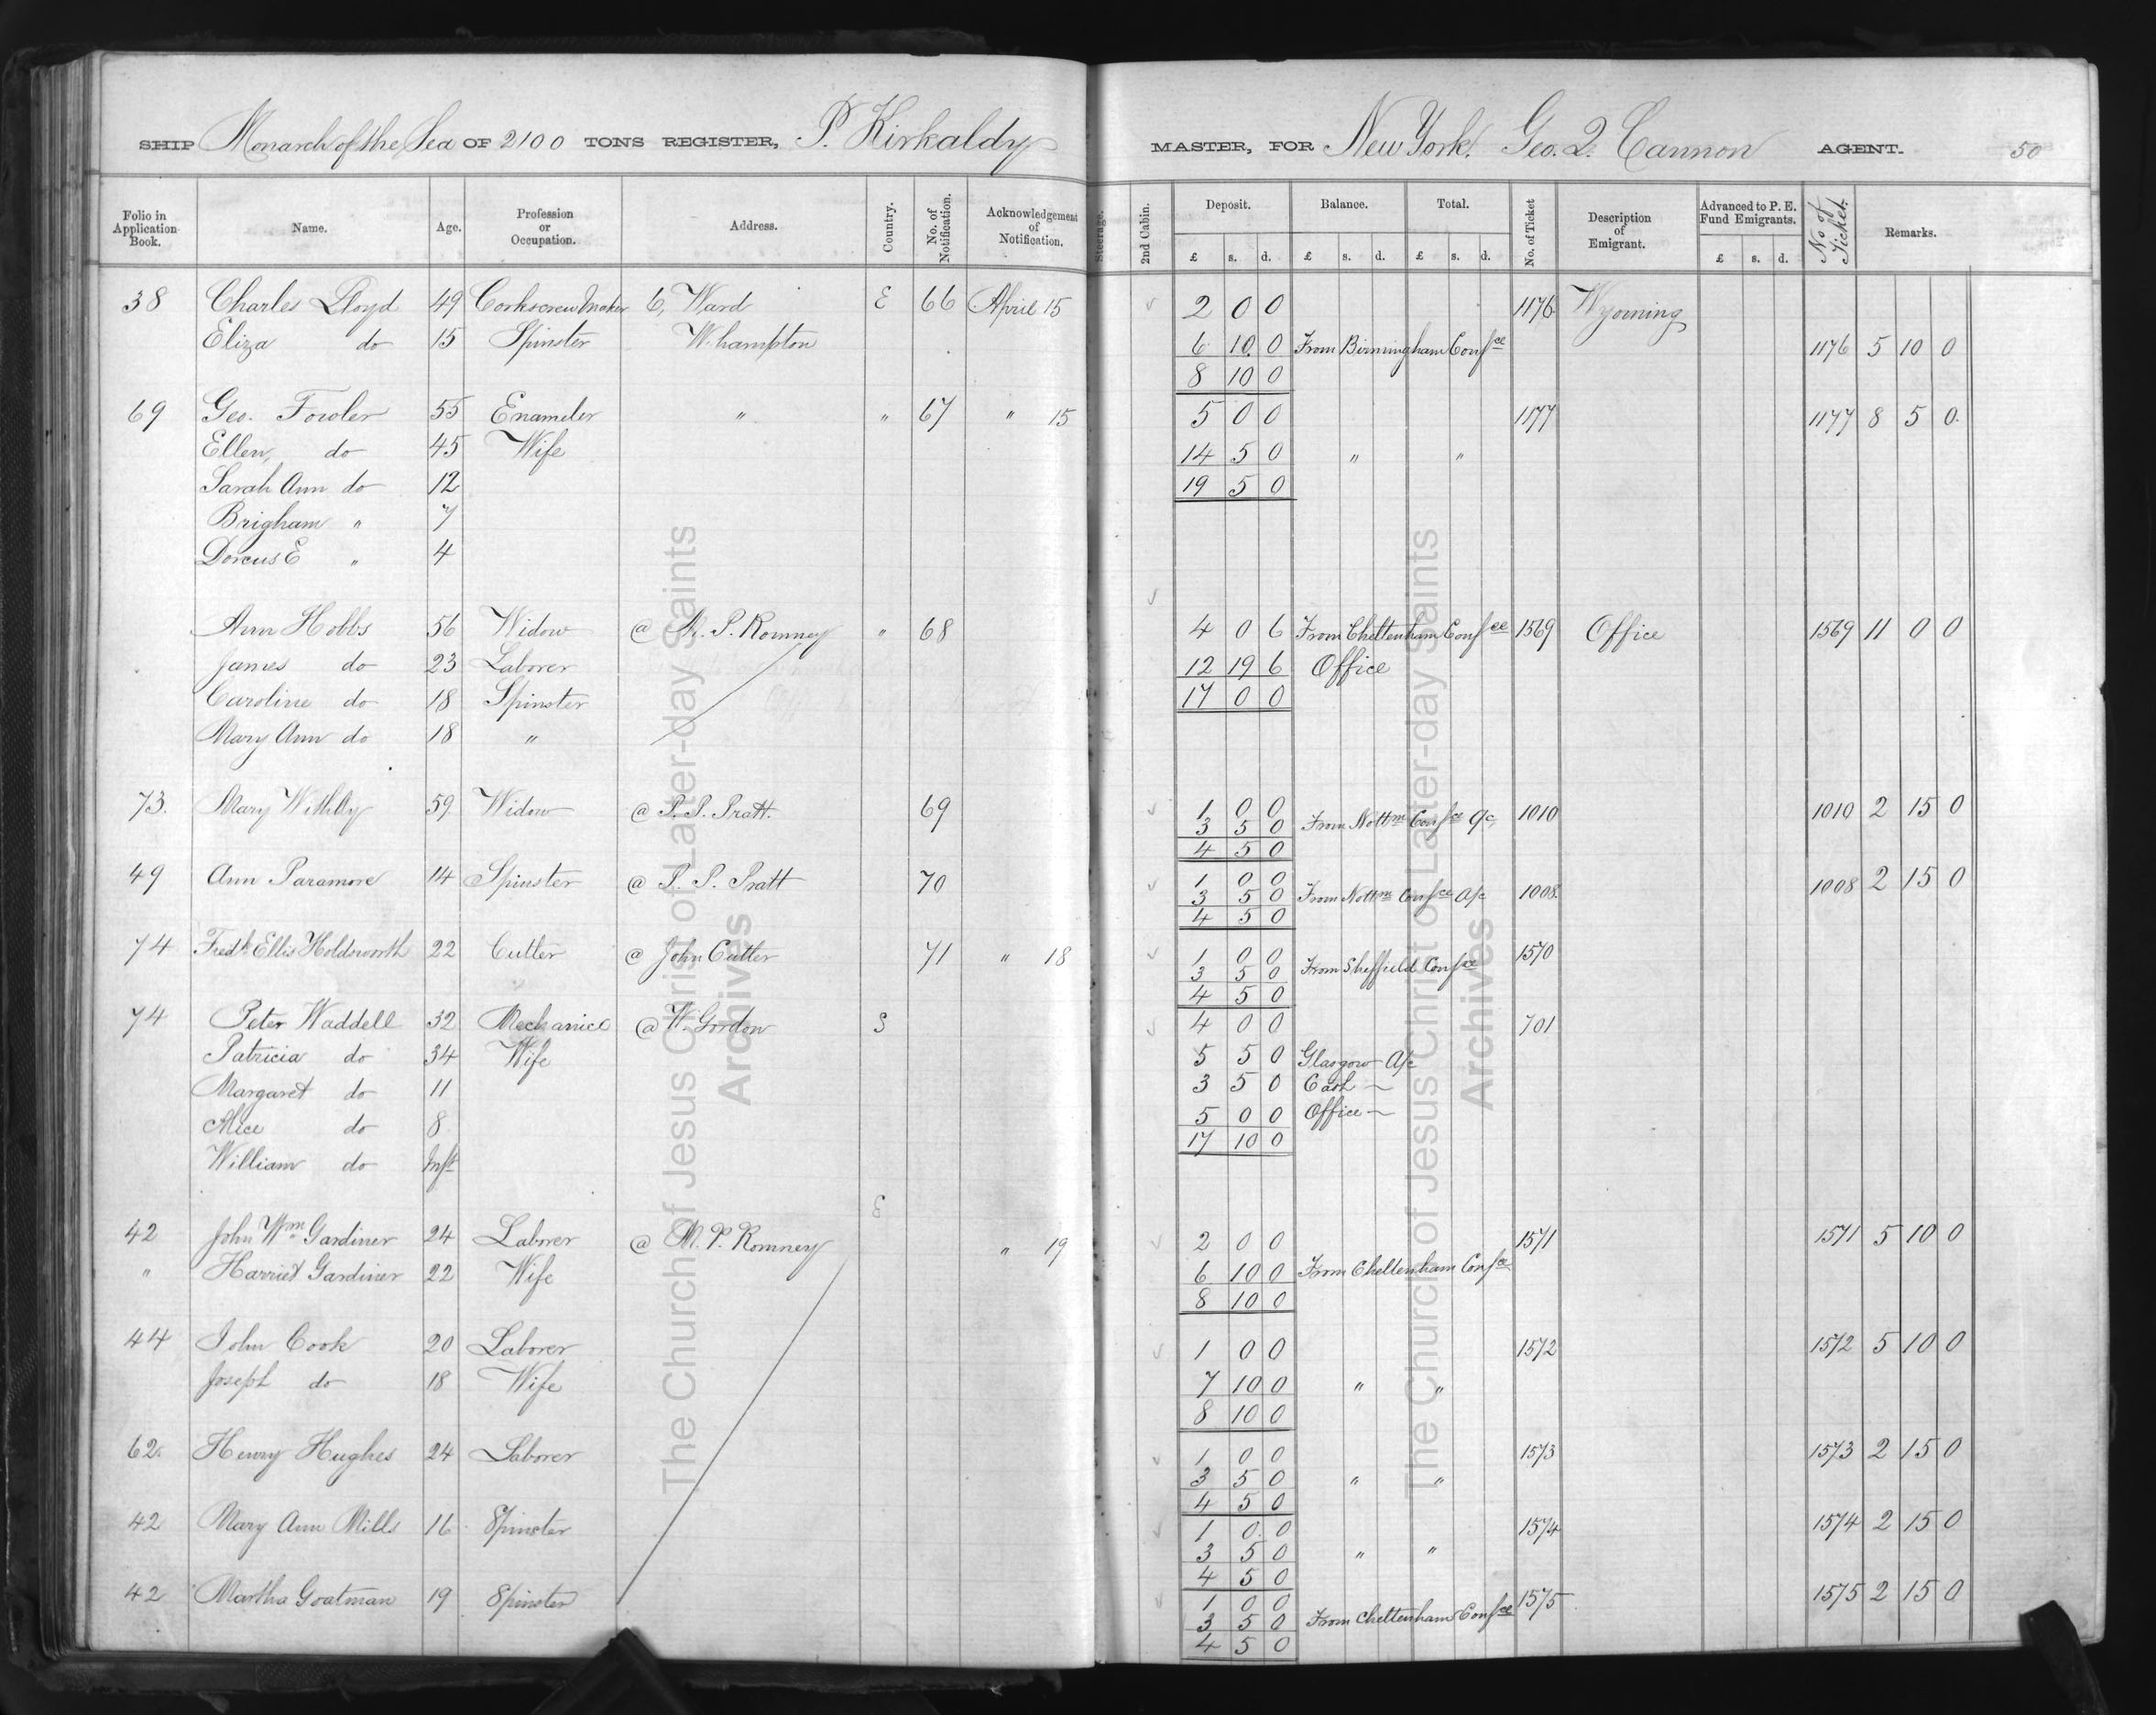 SHIP Monarch of the Sea OF 2100 TONS REGISTER, P. Kirkaldy MASTER, FOR New York. Geo. Q. Cannon AGENT. 50
Folio in Application Book. Name. Age. Profession or Occupation. Address. Country. No. of Notification. Acknowledgement of Notification. Steerage. 2nd Cabin. Deposit. Balance. Total. No. of Ticket Description of Emigrant. Advanced to P. E. Fund Emigrants. No of Ticket. Remarks.
£ s. d. £ s. d. £ s. d. £ s. d.
38 Charles Lloyd 49 Corkscrew Maker 6, Ward E 66 April 15 2 0 0 1176 Wyoming
Eliza do 15 Spinster W.hampton 6 10 0 From Birmingham Confce 1176 5 10 0
8 10 0
69 Geo. Fowler 55 Enameler " " 67 " 15 5 0 0 1177 1177 8 5 0
Ellen, do 45 Wife 14 5 0 " "
Sarah Ann do 12 19 5 0
Brigham " 7
Dorcus E " 4
Ann Hobbs 56 Widow @ M. P. Romney " 68 4 0 6 From Cheltenham Confce 1569 Office 1569 11 0 0
James do 23 Laborer 12 19 6 Office
Caroline do 18 Spinster 17 0 0
Mary Ann do 18 "
73. Mary 59 Widow @ P. P. Pratt. 69 1 0 0 1010 1010 2 15 0
3 5 0 From Nottm Confce a/c
4 5 0
49 Ann Paramore 14 Spinster @ P. P. Pratt 70 1 0 0 1008 1008 2 15 0
3 5 0 From Nottm Confce a/c
4 5 0
74 Fredk Ellis Holdsworth 22 Cutler @ John Cutler 71 " 18 1 0 0 1570
3 5 0 From Sheffield Confce
4 5 0
74 Peter Waddell 32 Mechanic @ W. Gordon S 4 0 0 701
Patricia do 34 Wife 5 5 0 Glasgow a/c
Margaret do 11 3 5 0 Cash
Alice do 8 5 0 0 Office
17 10 0
William do Inft
E
42 John Wm Gardiner 24 Laborer @ M. P. Romney " 19 2 0 0 1571 1571 5 10 0
" Harriet Gardiner 22 Wife 6 10 0 From Cheltenham Confce
8 10 0
44 John Cook 20 Laborer 1 0 0 1572 1572 5 10 0
Joseph do 18 Wife 7 10 0 " "
8 10 0
62. Henry Hughes 24 Laborer 1 0 0 1573 1573 2 15 0
3 5 0 " "
4 5 0
42 Mary Ann Mills 16 Spinster 1 0 0 1574 1574 2 15 0
3 5 0 " "
4 5 0
42 Martha Goatman 19 Spinster 1 0 0 1575 1575 2 15 0
3 5 0 From Cheltenham Confce
4 5 0
The Church of Jesus Christ of Later-day Saints
Archives
The Church of Jesus Christ of Later-day Saints
Archives